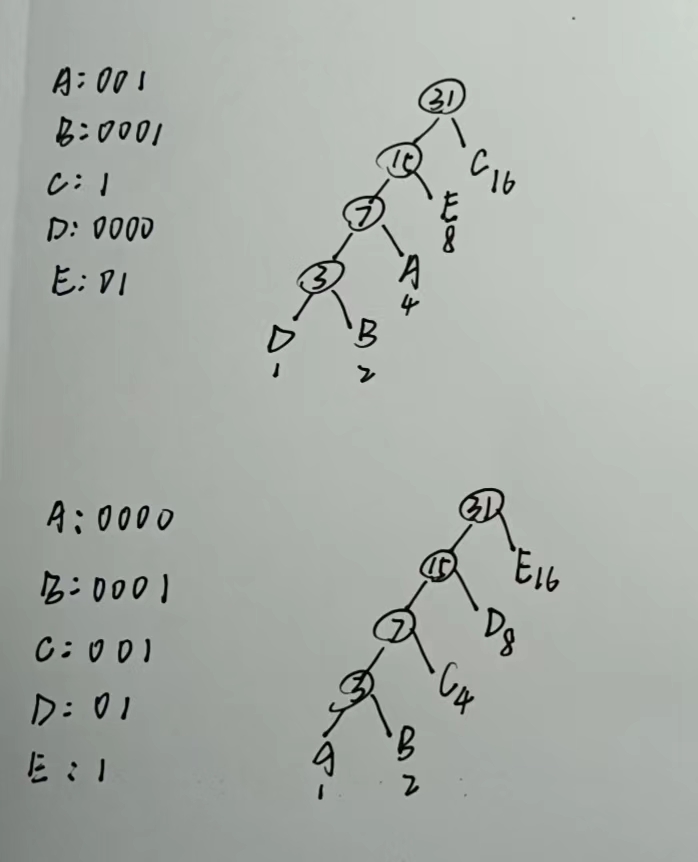 A: 001
B: 0001
C: 1
D: 0000
E: 01
31
15
C 16
7
E
8
3
A
4
D
B
1
2
A: 0000
B: 0001
C: 001
D: 01
E: 1
31
15
E 16
7
D 8
3
C 4
A
B
1
2